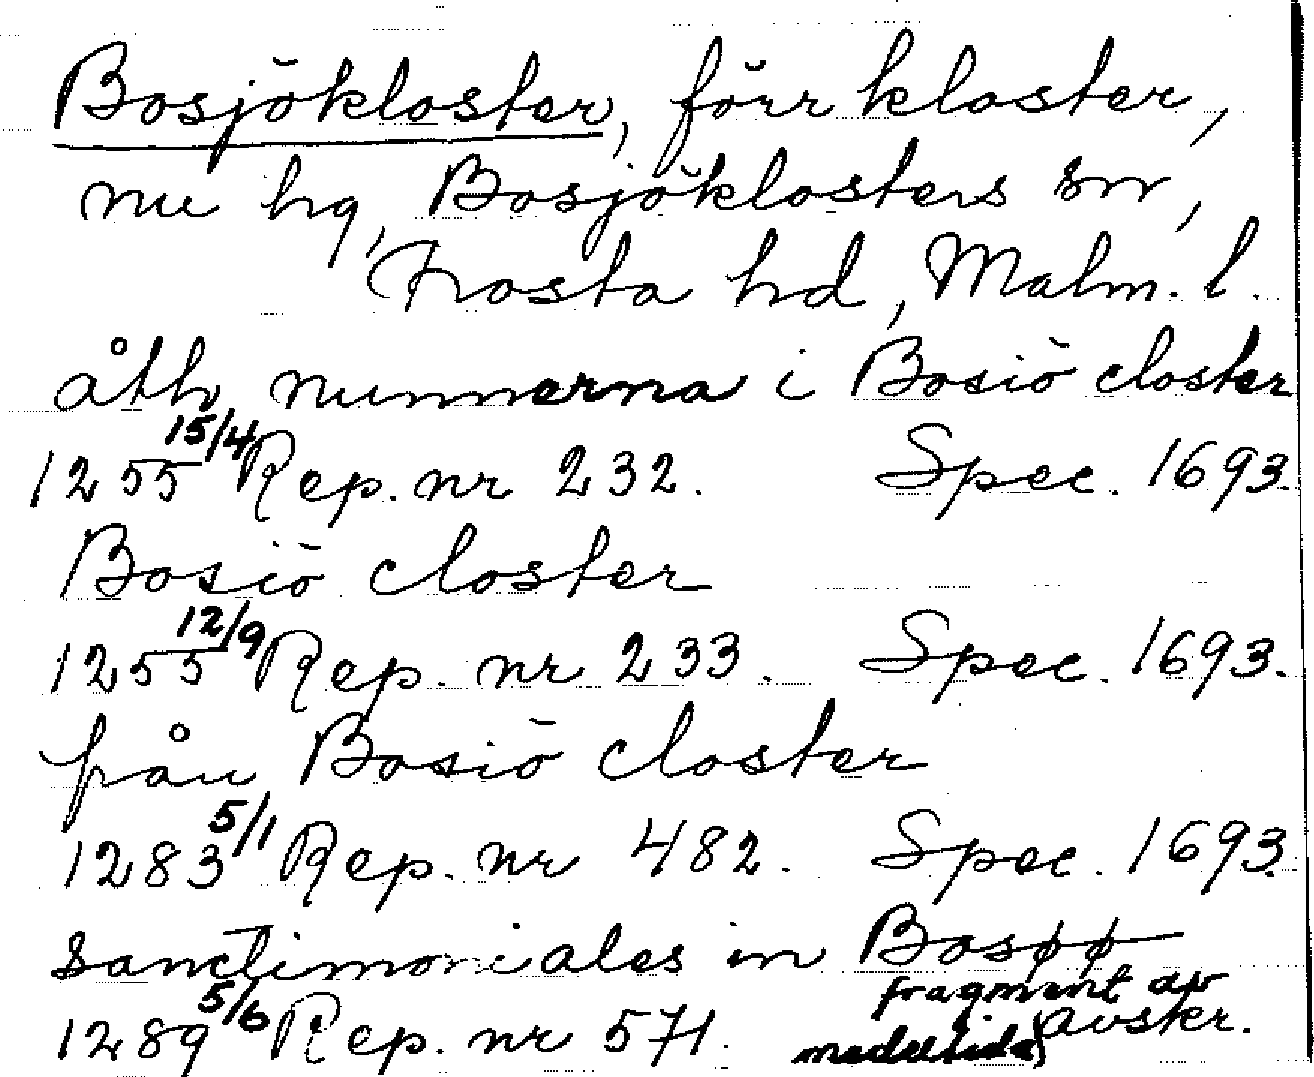 Bosjökloster, förr kloster,
nu hg, Bosjöklosters sn,
Frosta hd, Malm. l.
åth nunnerna i Bosiö closter
1255 15/4 Rep. nr 232. Spec. 1693.
Bosiö closter
1255 12/9 Rep. nr 233. Spec. 1693.
från Bosiö closter
1283 5/1 Rep. nr 482. Spec. 1693.
sanctimoniales in Bosøø
1289 5/6 Rep. nr 571. fragment av
medeltida avskr.